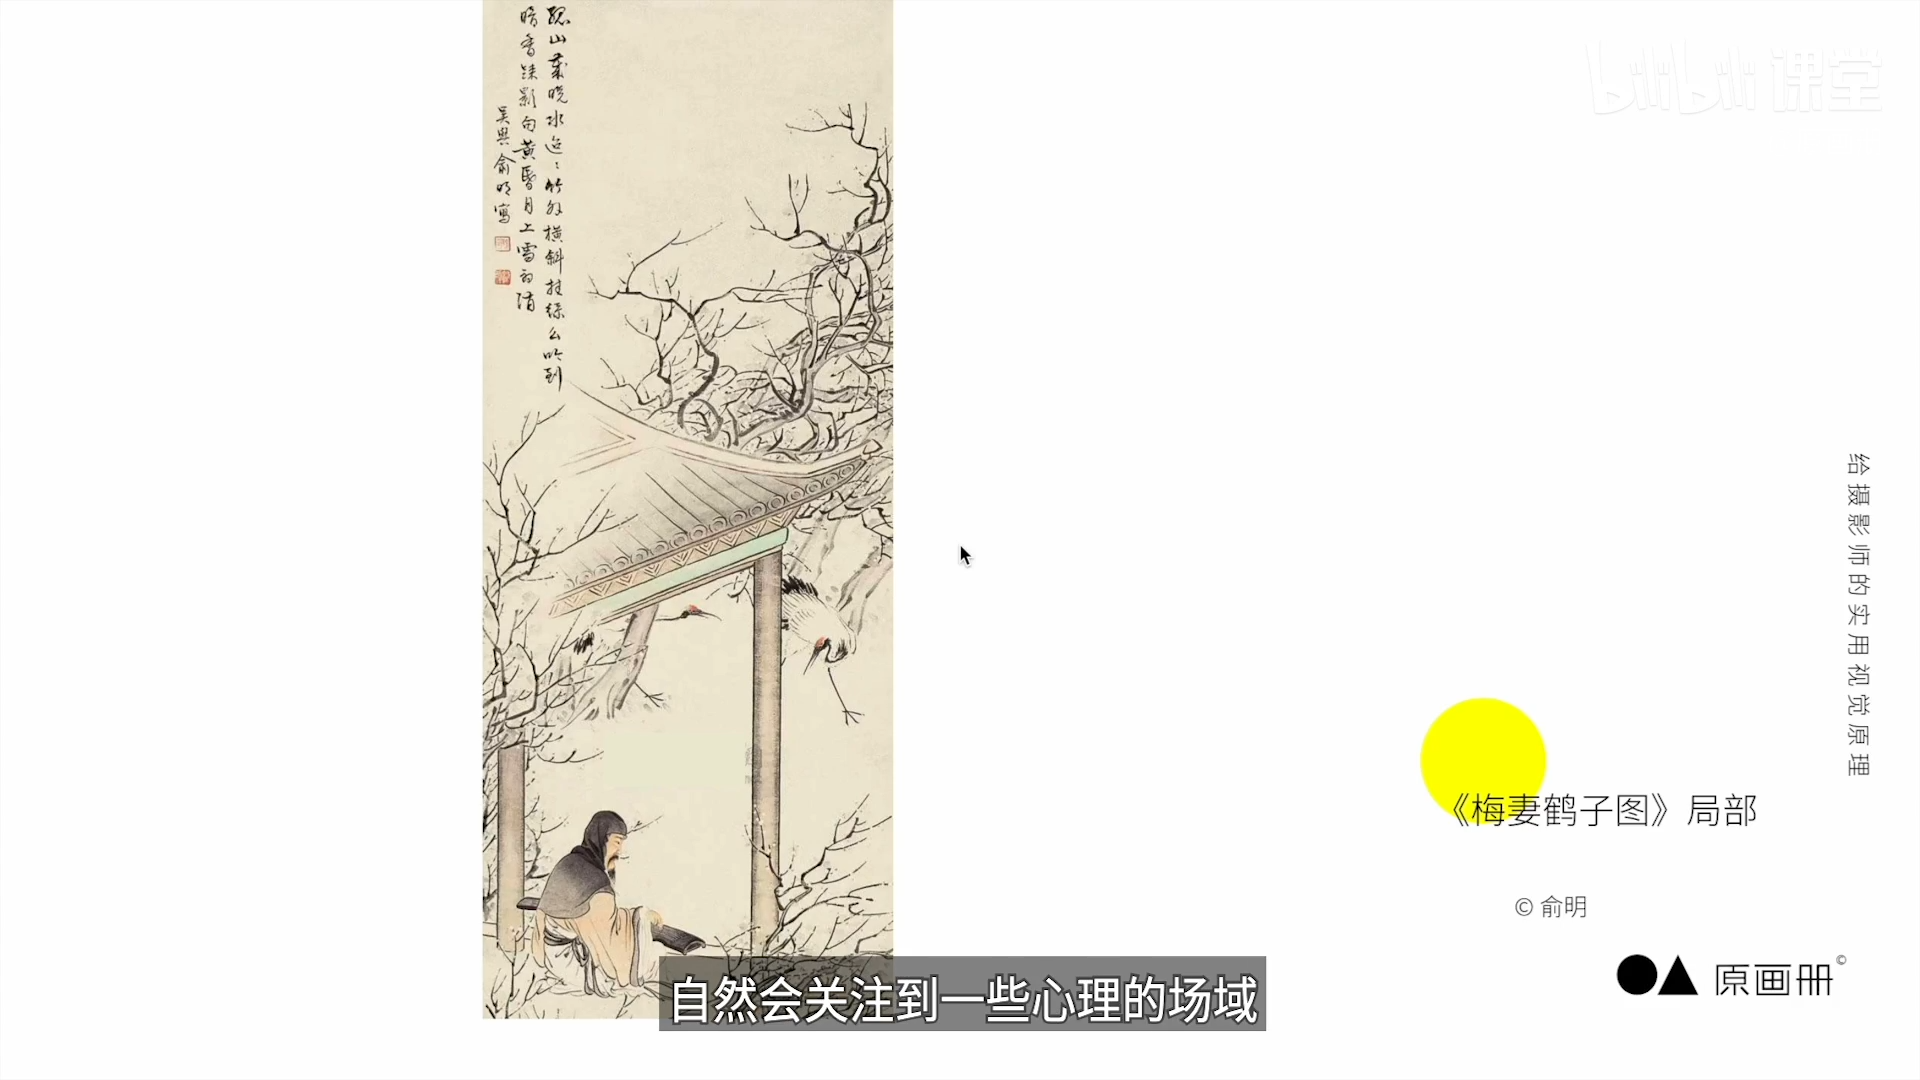 孤山晓水迢〻竹外橫斜挂綠么吟到
暗香疎影句黄昏月上雪初消
吴興俞明寫
bilibili 课堂
给摄影师的实用视觉原理
《梅妻鹤子图》局部
© 俞明
原画册©
自然会关注到一些心理的场域